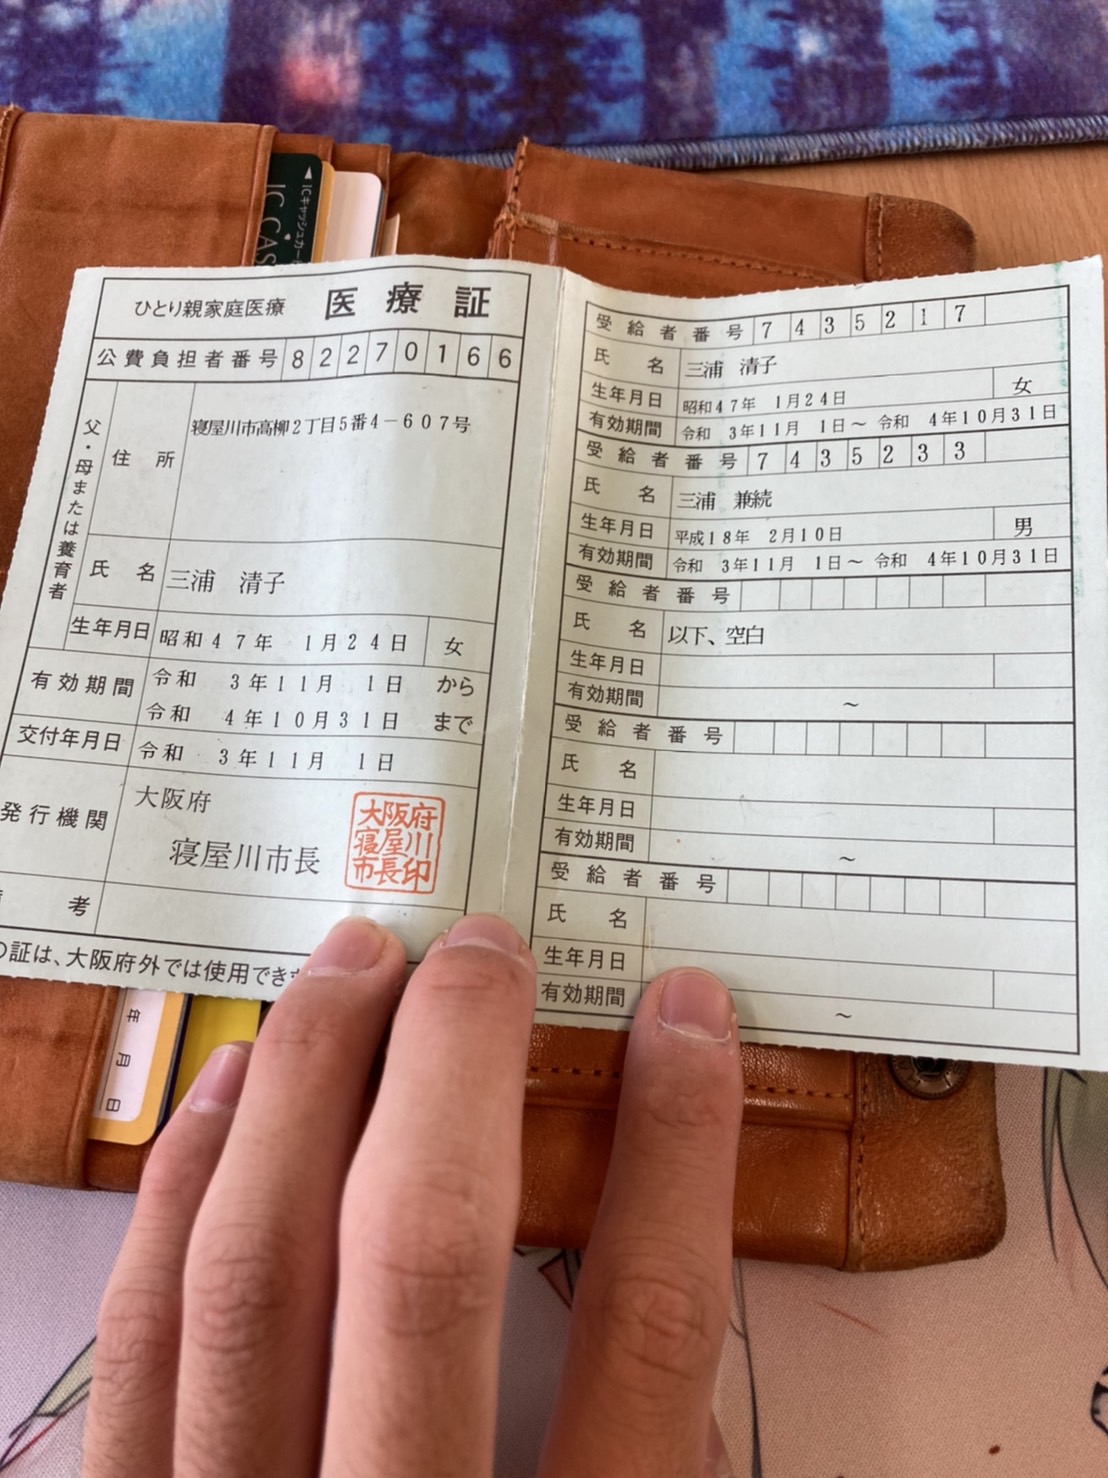 IC CAS
ICキャッシュカード
ひとり親家庭医療 医療証
公費負担者番号 82270166
父・母または養育者
住所 寝屋川市高柳2丁目5番4-607号
氏名 三浦 清子
生年月日 昭和47年 1月24日 女
有効期間 令和 3年11月 1日 から
令和 4年10月31日 まで
交付年月日 令和 3年11月 1日
発行機関 大阪府
寝屋川市長
大阪府
寝屋川
市長印
考
の証は、大阪府外では使用でき
受給者番号 7435217
氏名 三浦 清子
生年月日 昭和47年 1月24日 女
有効期間 令和 3年11月 1日~令和 4年10月31日
受給者番号 7435233
氏名 三浦 兼続
生年月日 平成18年 2月10日 男
有効期間 令和 3年11月 1日~令和 4年10月31日
受給者番号
氏名 以下、空白
生年月日
有効期間 ~
受給者番号
氏名
生年月日
有効期間 ~
受給者番号
氏名
生年月日
有効期間 ~
年 月 日